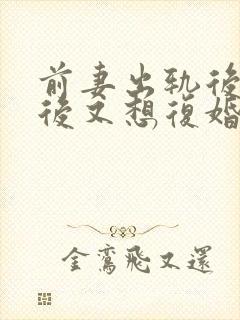 前妻出轨後
後又想復婚
金鸞飛又還